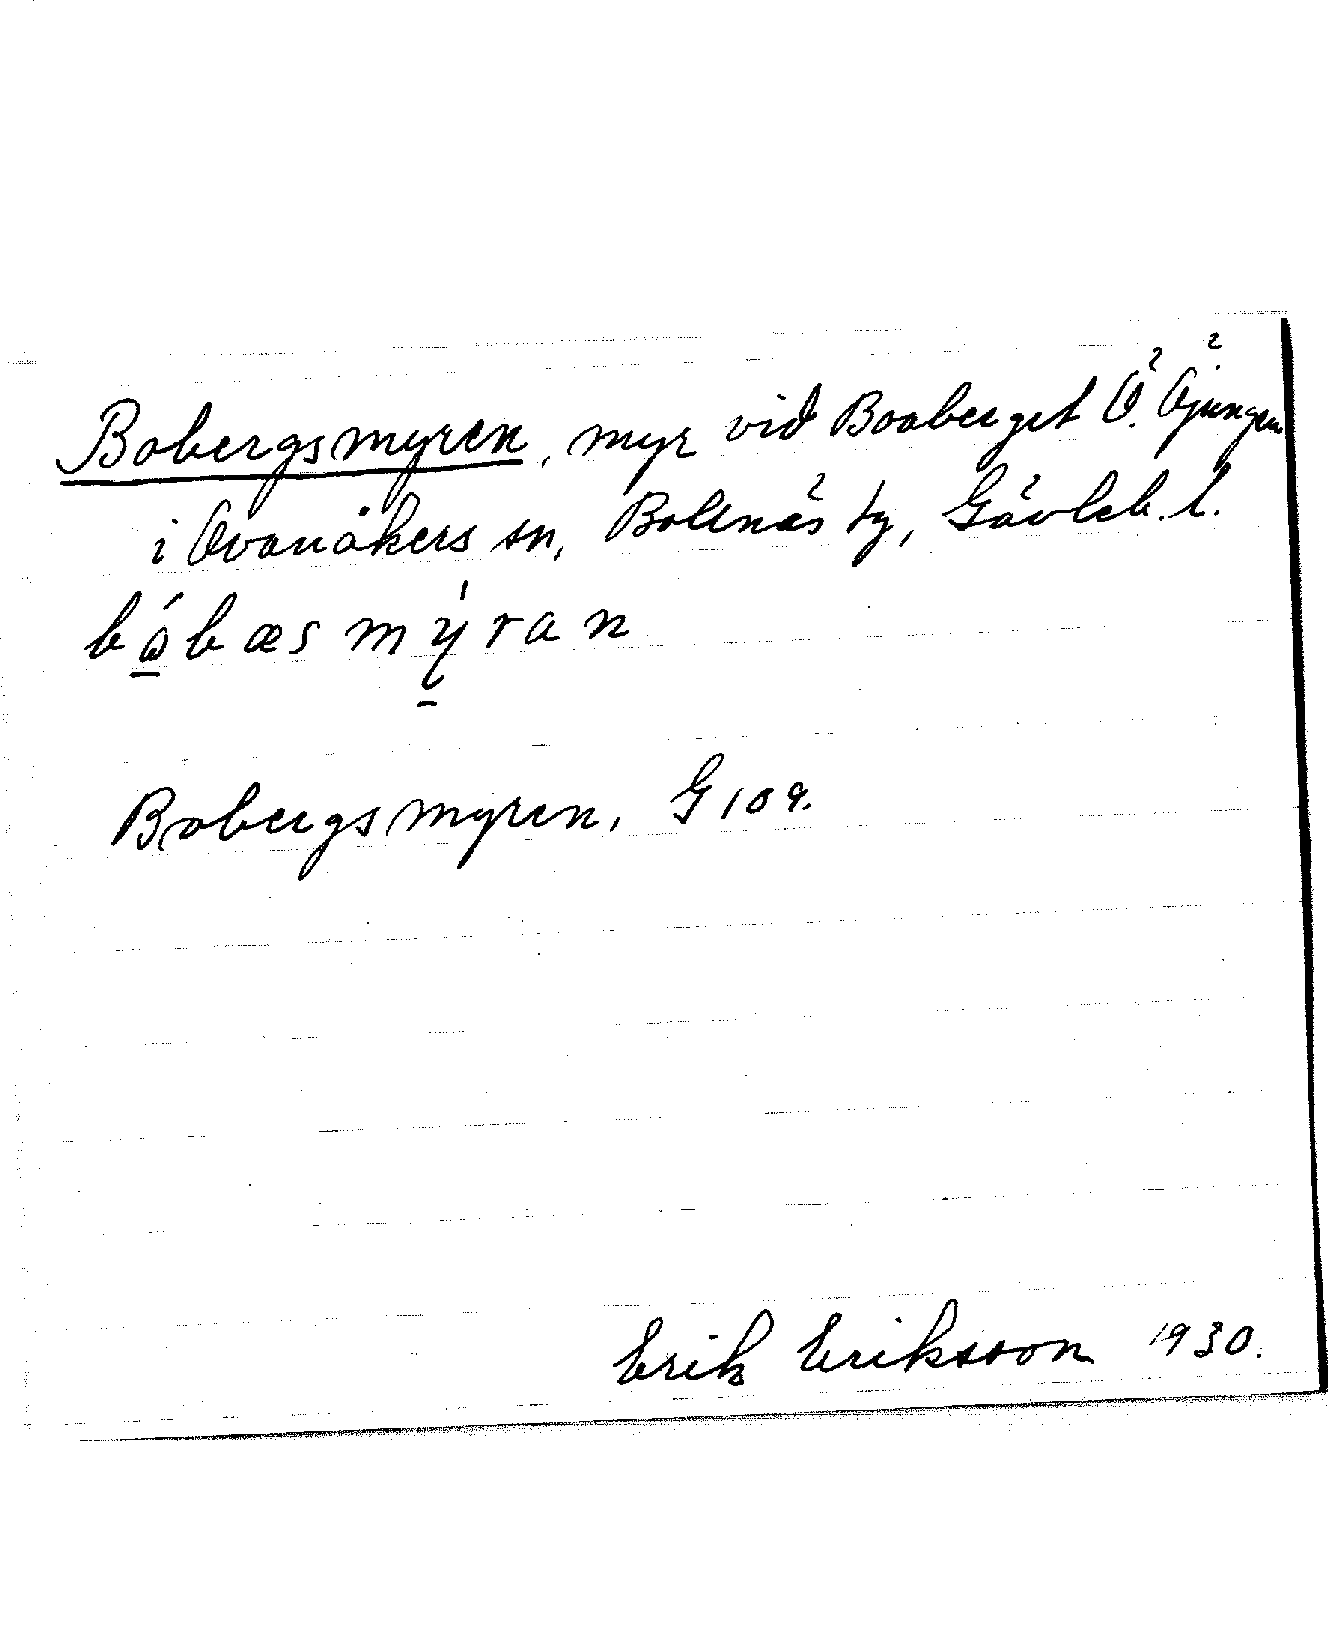 Bobergsmyren, myr vid Boaberget Ö. Öjungen
i Ovanåkers sn, Bollnäs tg, Gävleb. l.
bóbæsmýran
Bobergsmyren, G 109.
Erik Eriksson 1930.